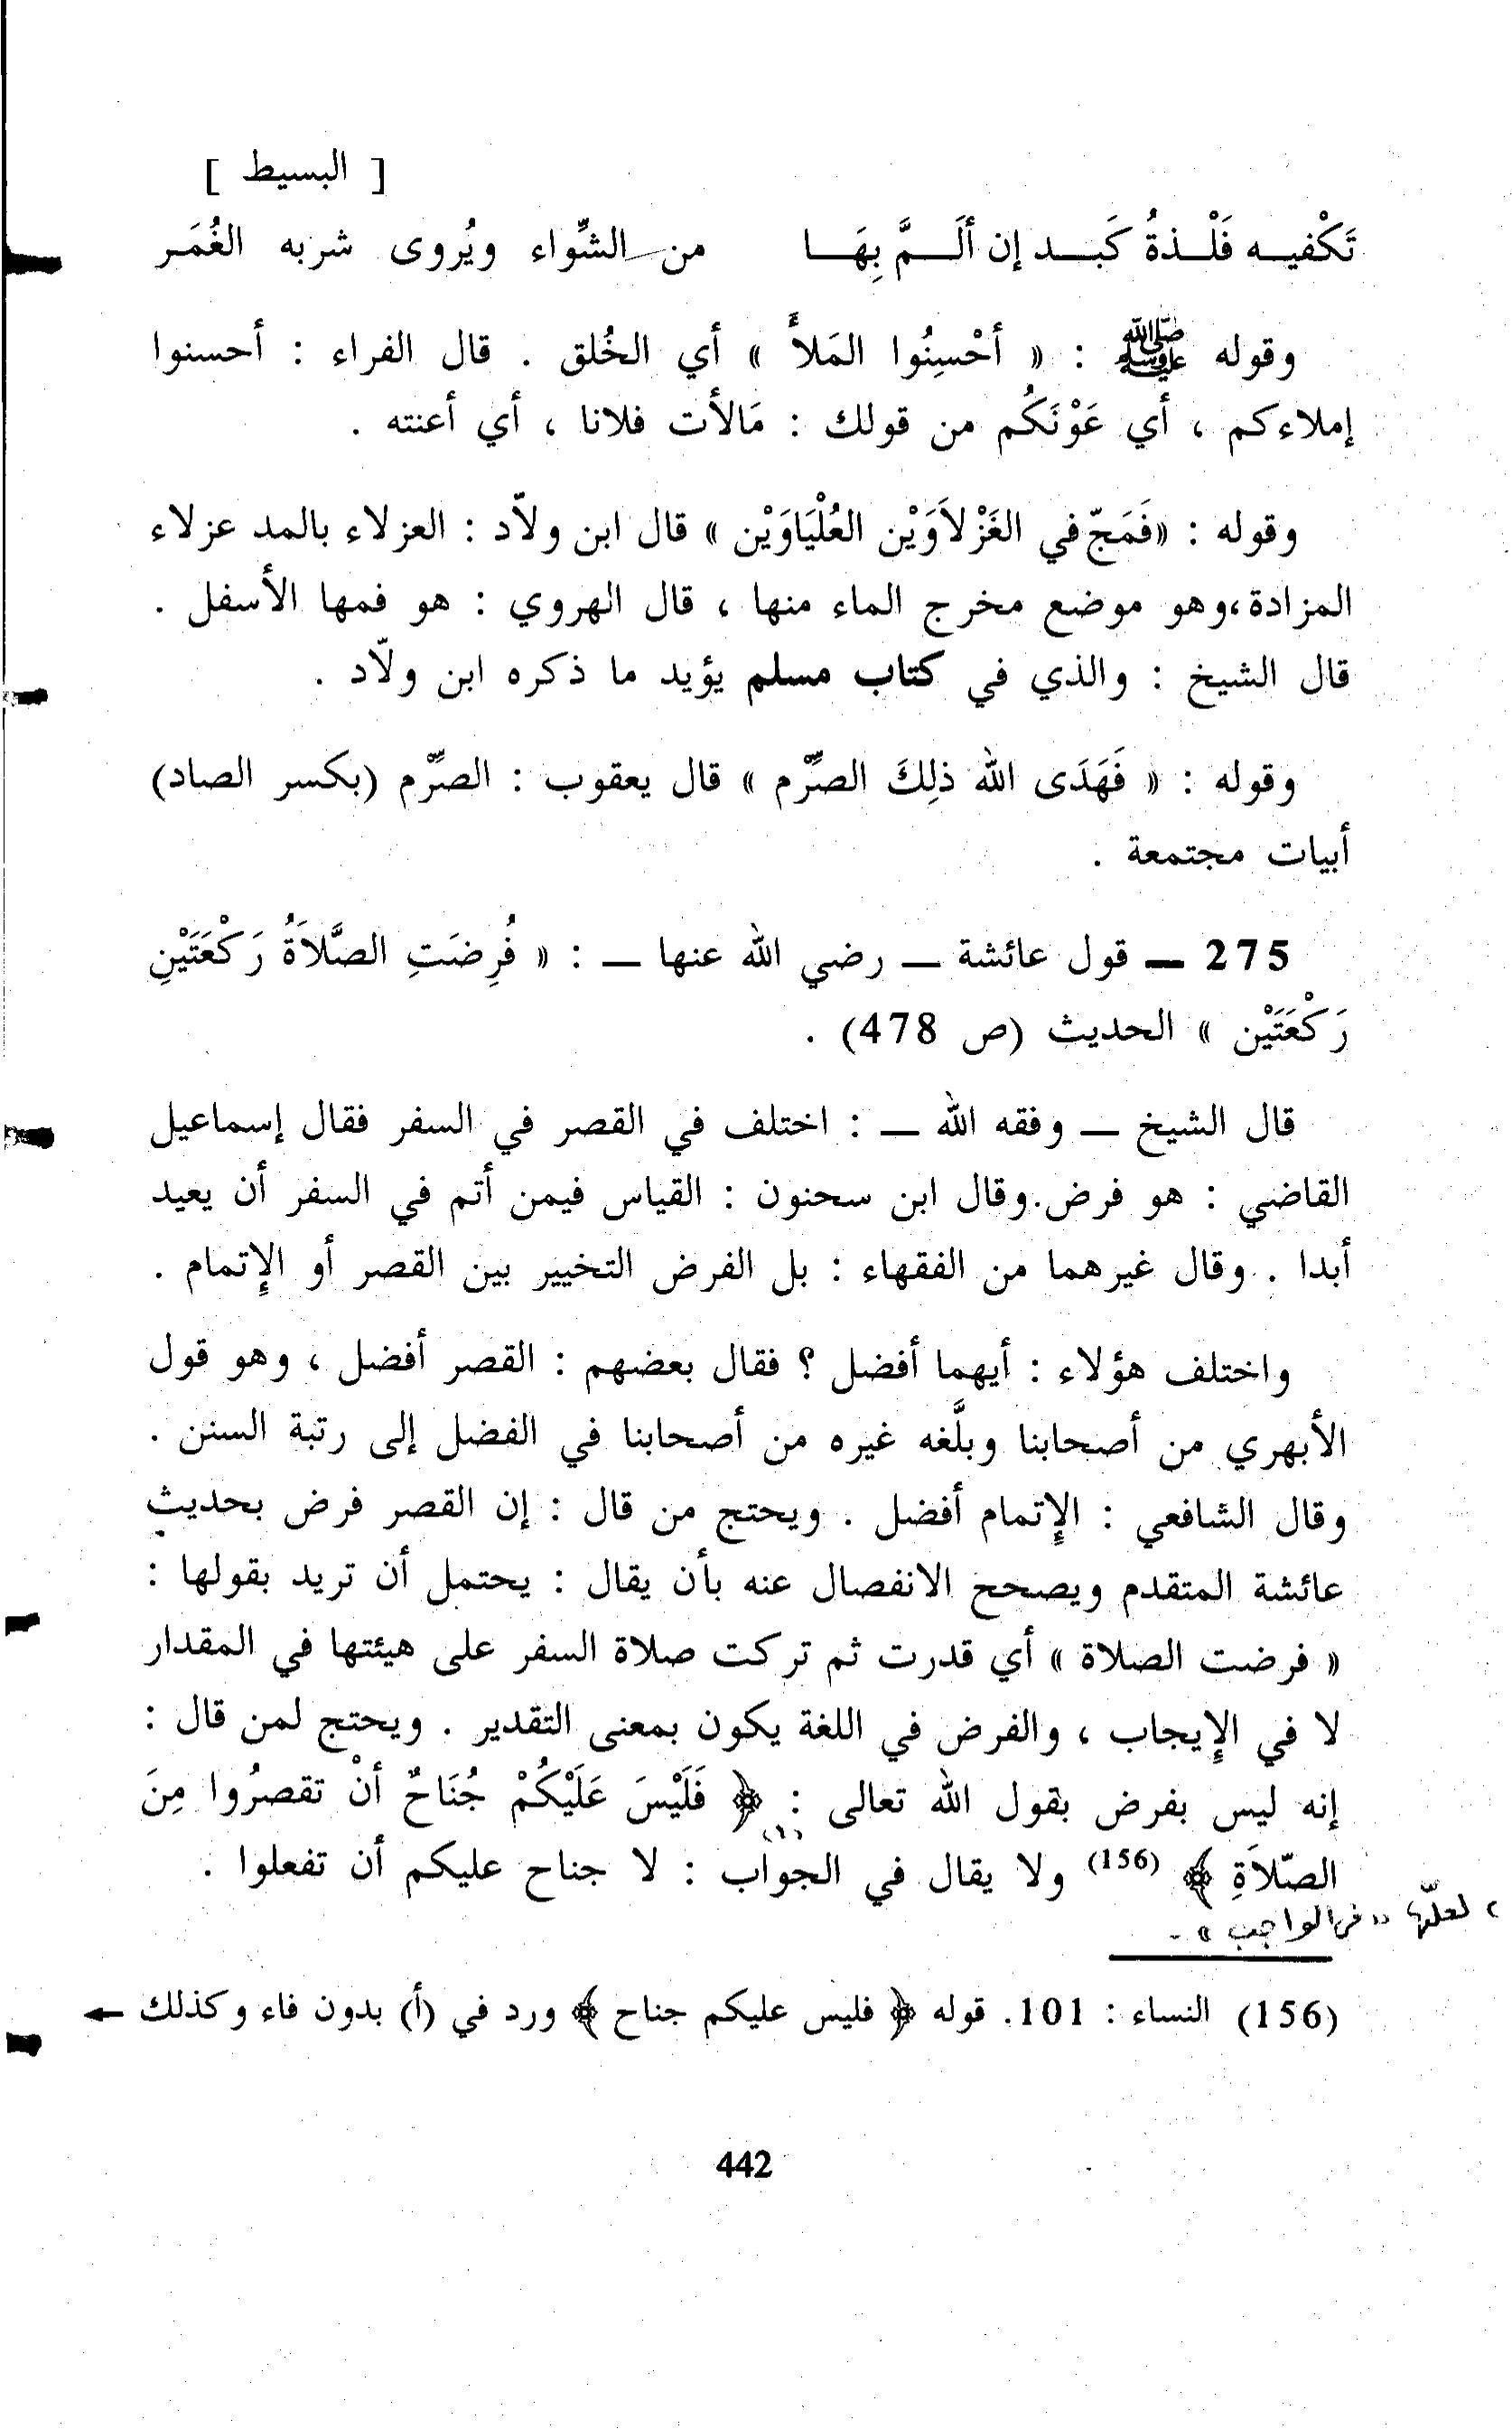 [ البسيط ]
تَكْفيـه فَلْـذةُ كَبـد إن ألَـمَّ بِهَـا من الشِّواء ويُروى شربه الغُمَـر
وقوله ﷺ : « أحْسِنُوا المَلأَ » أي الخُلق . قال الفراء : أحسنوا
إملاءكم ، أي عَوْنَكُم من قولك : مَالأت فلانا ، أي أعنته .
وقوله : «فَمَجّ في الغَزْلاَوَيْن العُلْيَاوَيْن » قال ابن ولاّد : العزلاء بالمد عزلاء
المزادة،وهو موضع مخرج الماء منها ، قال الهروي : هو فمها الأسفل .
قال الشيخ : والذي في كتاب مسلم يؤيد ما ذكره ابن ولاّد .
وقوله : « فَهَدَى الله ذلِكَ الصِّرْم » قال يعقوب : الصِّرْم (بكسر الصاد)
أبيات مجتمعة .
275 — قول عائشة — رضي الله عنها — : « فُرِضَتِ الصَّلاَةُ رَكْعَتَيْنِ
رَكْعَتَيْن » الحديث (ص 478) .
قال الشيخ — وفقه الله — : اختلف في القصر في السفر فقال إسماعيل
القاضي : هو فرض.وقال ابن سحنون : القياس فيمن أتم في السفر أن يعيد
أبدا . وقال غيرهما من الفقهاء : بل الفرض التخيير بين القصر أو الإتمام .
واختلف هؤلاء : أيهما أفضل ؟ فقال بعضهم : القصر أفضل ، وهو قول
الأبهري من أصحابنا وبلَّغه غيره من أصحابنا في الفضل إلى رتبة السنن .
وقال الشافعي : الإتمام أفضل . ويحتج من قال : إن القصر فرض بحديث
عائشة المتقدم ويصحح الانفصال عنه بأن يقال : يحتمل أن تريد بقولها :
« فرضت الصلاة » أي قدرت ثم تركت صلاة السفر على هيئتها في المقدار
لا في الإيجاب ، والفرض في اللغة يكون بمعنى التقدير . ويحتج لمن قال :
إنه ليس بفرض بقول الله تعالى : ﴿ فَلَيْسَ عَلَيْكُمْ جُنَاحٌ أنْ تقصرُوا مِنَ
الصّلاَةِ ﴾ (156) ولا يقال في الجواب : لا جناح عليكم أن تفعلوا .
، لعلّها « في الواجب » .
(156) النساء : 101. قوله ﴿ فليس عليكم جناح ﴾ ورد في (أ) بدون فاء وكذلك ←
442